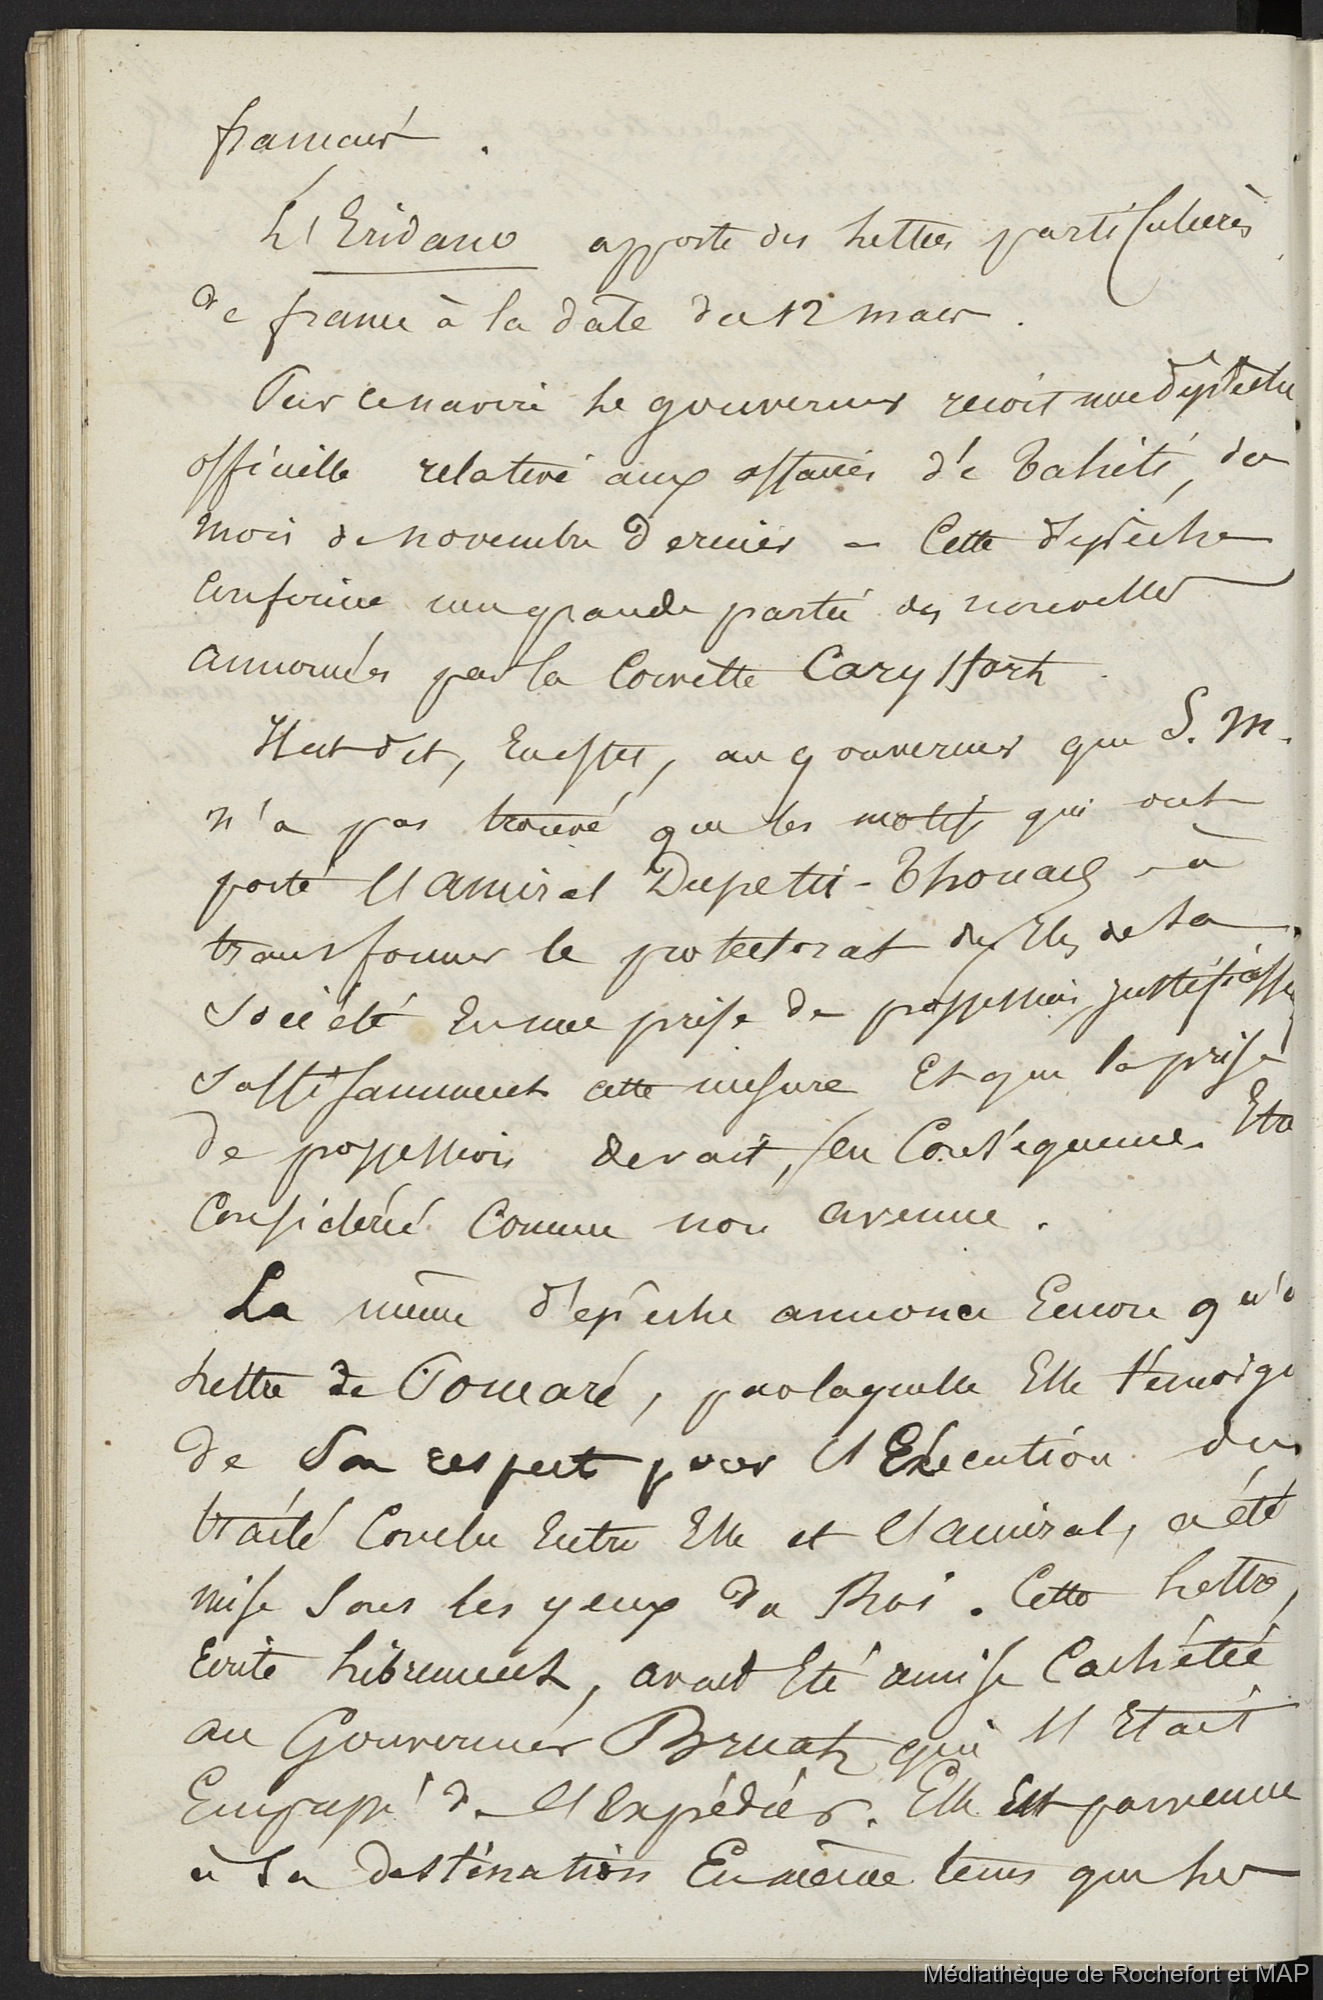 français.
L'Eridano apporte des lettres particulières
de france à la date du 12 mars.
Par ce navire le gouverneur reçoit une dépêche
officielle relative aux affaires de Tahiti, du
mois de novembre dernier - Cette dépêche
confirme une grande partie des nouvelles
annoncées par la Corvette Carysfort.
Il est dit, En effet, au gouverneur que S. M.
n'a pas trouvé que les motifs qui ont
porté l'amiral Dupetit-Thouars à
transformer le protectorat des Iles de la
Société En une prise de possession, justifiasse
suffisamment cette mesure Et que la prise
de possession devait, en Conséquence Etre
Considérée Comme non avenue.
La même dépêche annonce Encore qu'
lettre de Pomaré, par laquelle Elle témoigne
de son respect pour l'Exécution du
traité Conclu Entre Elle et l'amiral, a été
mise sous les yeux du Roi. Cette lettre,
Ecrite librement, avait Eté remise Cachetée
au Gouverneur Bruat qui s'Etait
Engagé de l'Expédier. Elle Est parvenue
à sa destination En même tems que les
Médiathèque de Rochefort et MAP